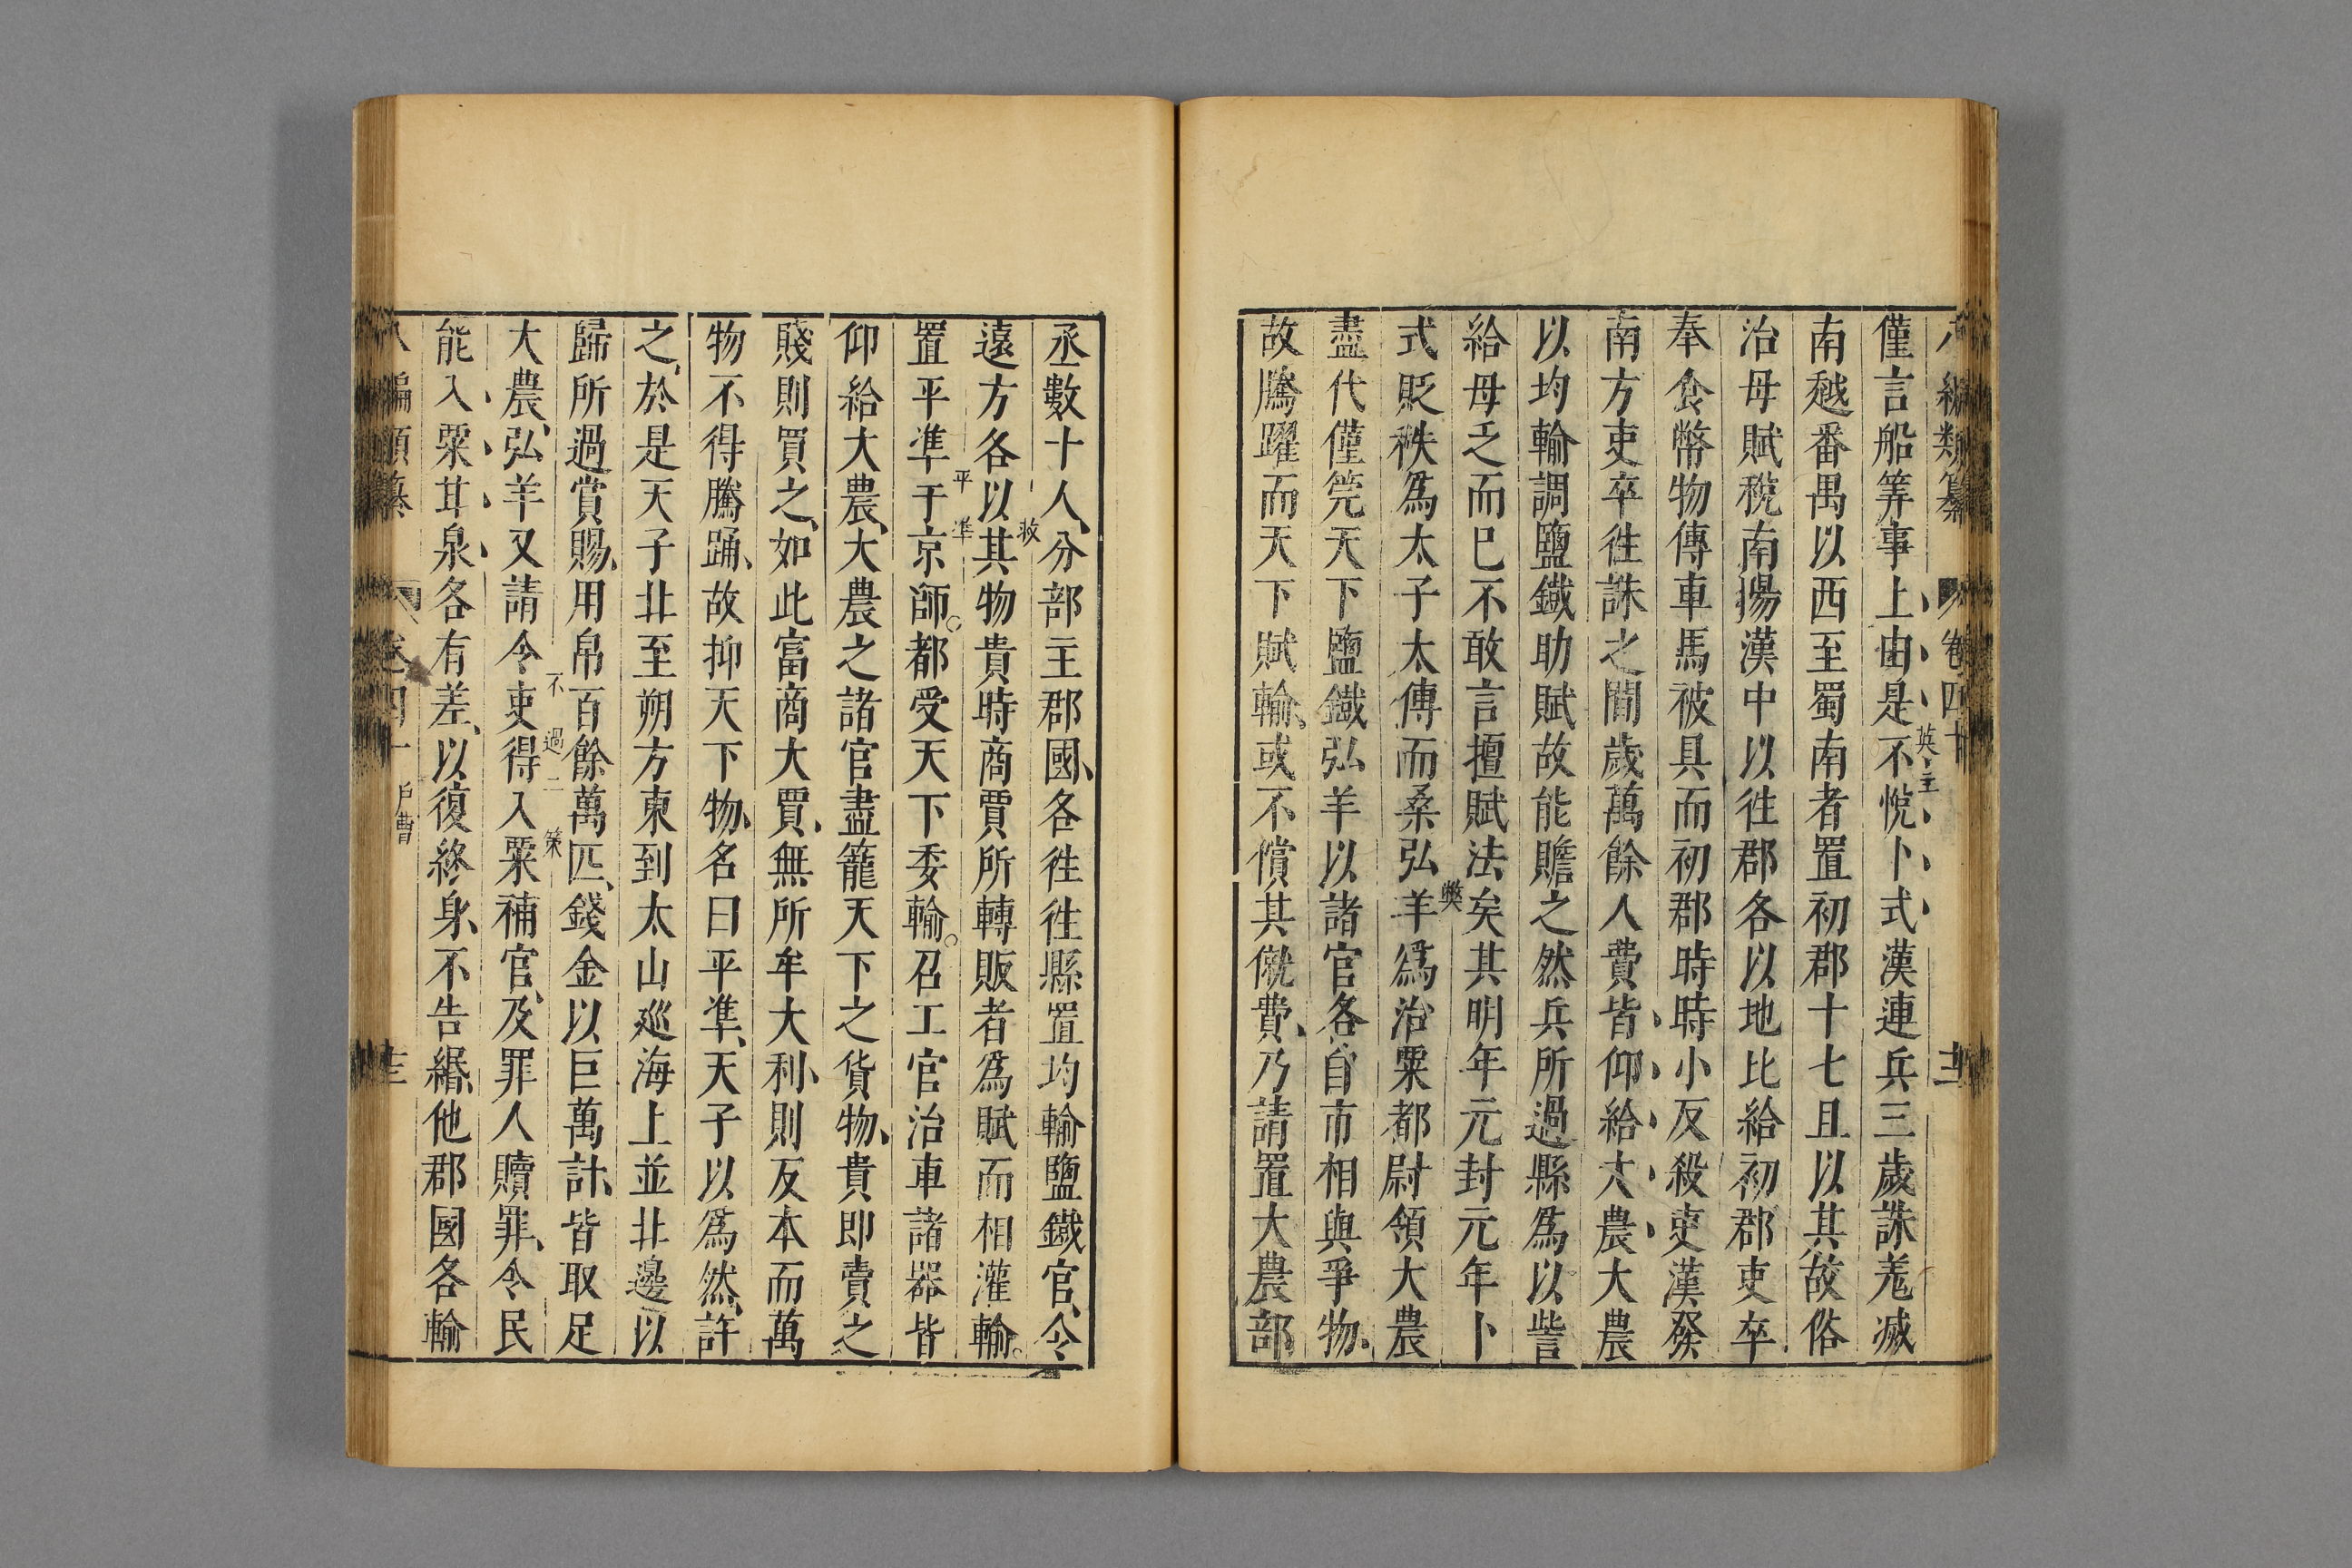 八編類纂 卷四十 十二
僅言船筭事上由是不悅卜式漢連兵三歲誅羌滅
英主
南越番禺以西至蜀南者置初郡十七且以其故俗
治毋賦稅南揚漢中以徃郡各以地比給初郡吏卒
奉食幣物傳車馬被具而初郡時時小反殺吏漢發
南方吏卒徃誅之間歲萬餘人費皆仰給大農大農
以均輸調鹽鐵助賦故能贍之然兵所過縣爲以訾
給毋乏而巳不敢言擅賦法矣其明年元封元年卜
弊
式貶秩爲太子太傅而桑弘羊爲治粟都尉領大農
盡代僅筦天下鹽鐵弘羊以諸官各自市相與爭物、
故騰躍而天下賦輸。或不償其僦費、乃請置大農部
丞數十人、分部主郡國、各徃徃縣置均輸鹽鐵官、令
遠方各以其物貴時商賈所轉販者爲賦而相灌輸。
平準
置平準于京師。都受天下委輸。召工官治車諸器皆
仰給大農、大農之諸官盡籠天下之貨物、貴即賣之
賤則買之、如此富商大賈、無所牟大利、則反本而萬
物不得騰踊、故抑天下物、名曰平準、天子以爲然、許
之、於是天子北至朔方東到太山巡海上並北邊以
歸所過賞賜、用帛百餘萬匹、錢金以巨萬計、皆取足
不過二策
大農、弘羊又請令吏得入粟補官、及罪人贖罪、令民
能入粟甘泉各有差、以復終身、不告緡、他郡國各輸
八編類纂 卷四十 戶曹 十三